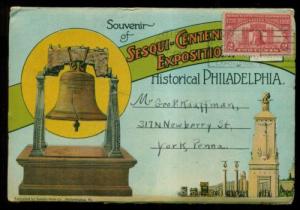 Souvenir
of
SESQUI-CENTENNIAL
EXPOSITION
Historical PHILADELPHIA.
Mr Geo K Kauffman,
317 N Newberry St,
York, Penna.